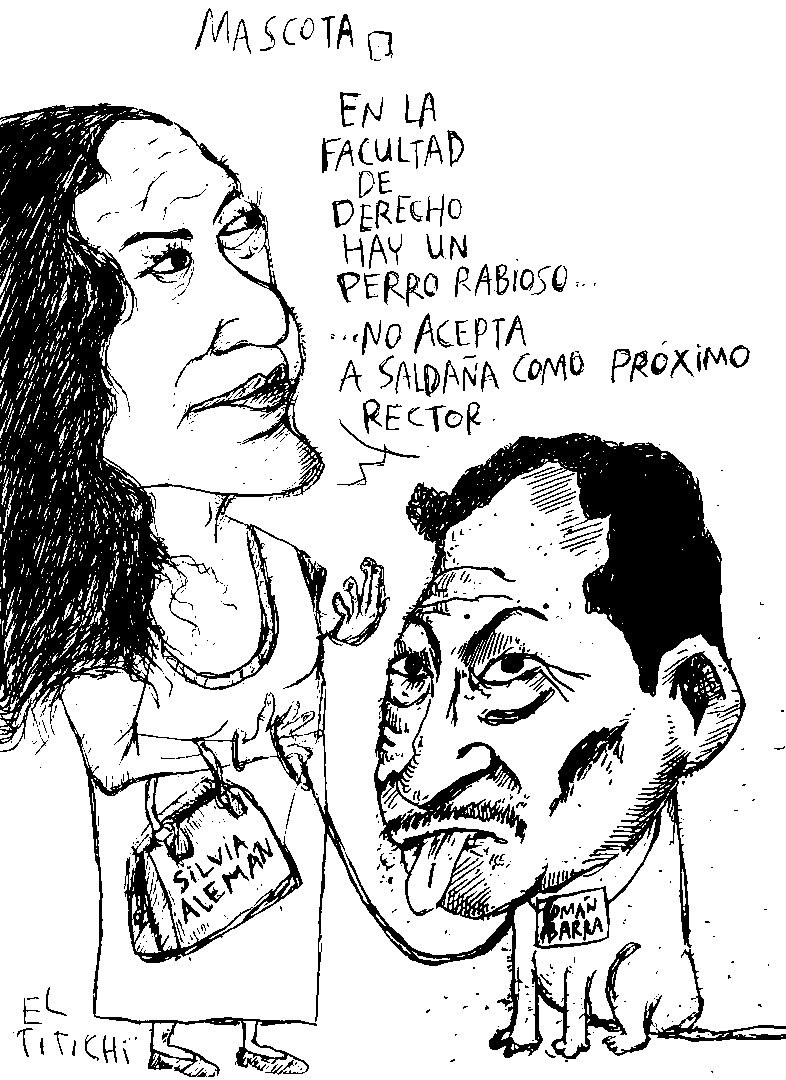 MASCOTA
EN LA
FACULTAD
DE
DERECHO
HAY UN
PERRO RABIOSO...
...NO ACEPTA
A SALDAÑA COMO PRÓXIMO
RECTOR.
SILVIA
ALEMÁN
ROMÁN
IBARRA
EL
TITICHI